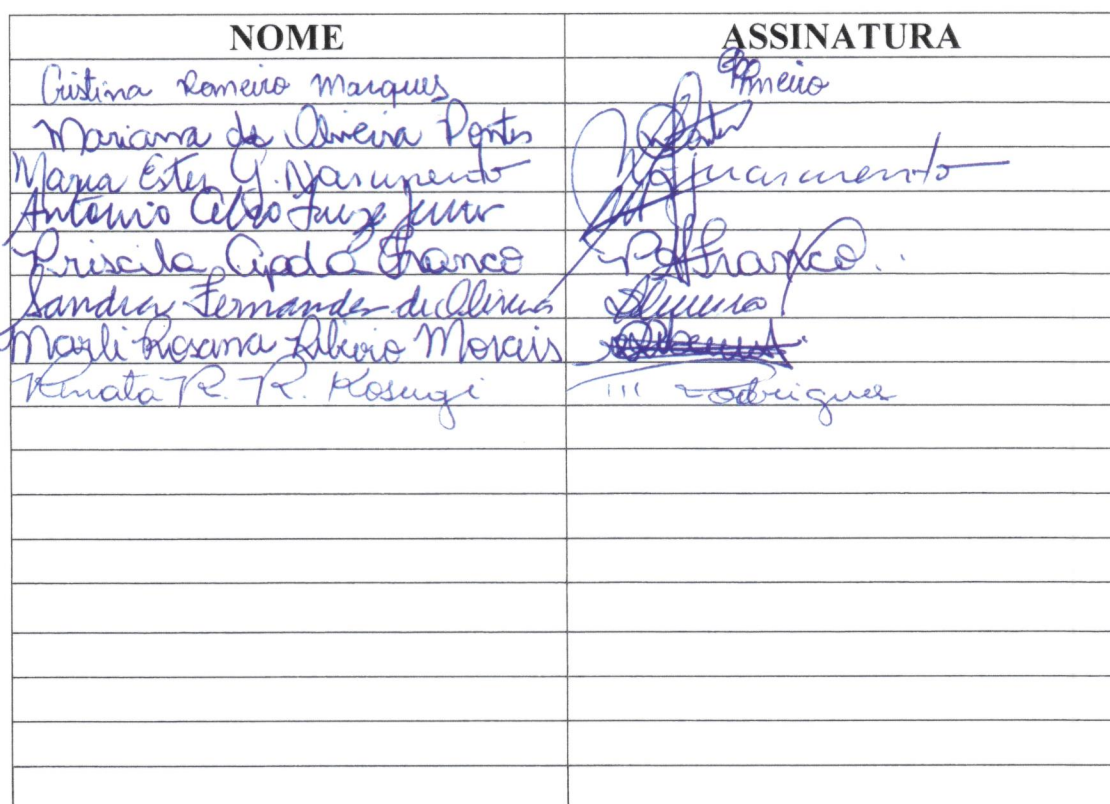 NOME ASSINATURA
Cristina Romeiro Marques Romeiro
Mariana de Oliveira Pontes Pontes
Maria Ester G. Nascimento Nascimento
Antonio Celso Junior
Priscila Apda Franco PAFranco
Sandra Fernandes de Oliveira
Marli Rosana Ribeiro Morais
Renata R. R. Kosugi Rodrigues